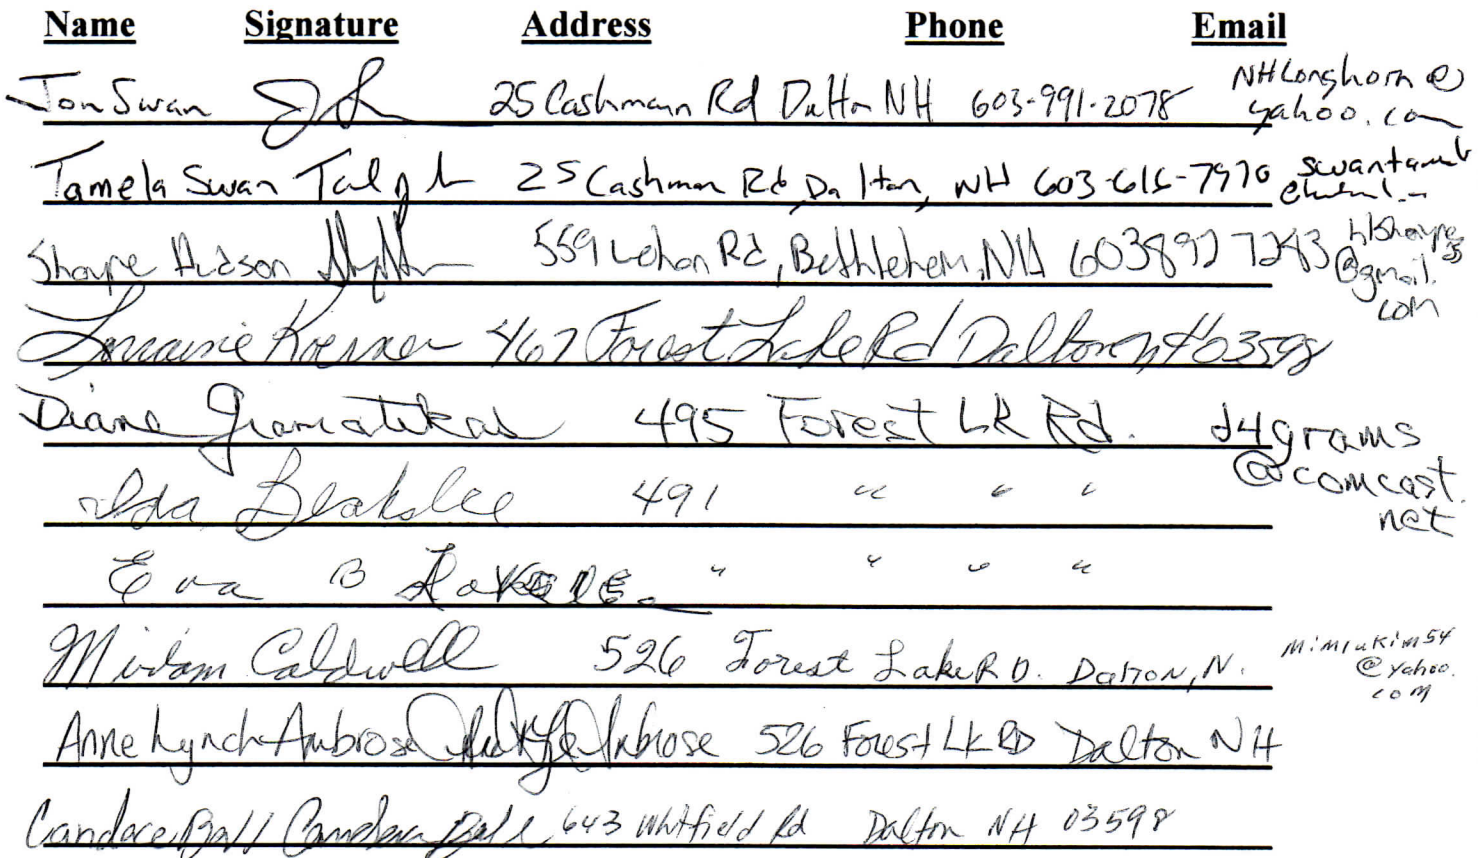 Name Signature Address Phone Email
Jon Swan 25 Cashman Rd Dalton NH 603-991-2078 NHLonghorn@
yahoo.com
Tamela Swan 25 Cashman Rd, Dalton, NH 603-616-7970
Shayne Hudson 559 Lehan Rd, Bethlehem, NH 603 892 7243
@gmail.
com
Lorraine 467 Forest Lake Rd Dalton NH 03598
Diane Gramatikas 495 Forest LK Rd. d4grams
@comcast.
net
Ida Blakslee 491 " " "
Eva B " " " "
Miriam Caldwell 526 Forest Lake RD. Dalton, N. mimiukim54
@yahoo.
com
Anne Lynch Ambrose 526 Forest LK RD Dalton NH
Candace Ball Candace Ball 643 Whitfield Rd Dalton NH 03598